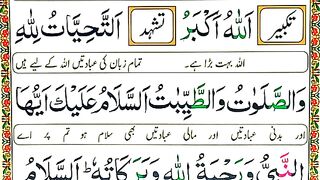 تكبير اَللهُ اَكْبَرُ تشهد اَلتَّحِيَّاتُ لِلّٰهِ
اللہ بہت بڑا ہے۔ تمام زبان کی عبادتیں اللہ کے لیے ہیں
وَالصَّلَوٰتُ وَالطَّيِّبٰتُ اَلسَّلَامُ عَلَيْكَ اَيُّهَا
اور بدنی عبادتیں اور مالی عبادتیں بھی سلام ہو تم پر اے
النَّبِيُّ وَرَحْمَةُ اللهِ وَبَرَكَاتُهٗ اَلسَّلَامُ